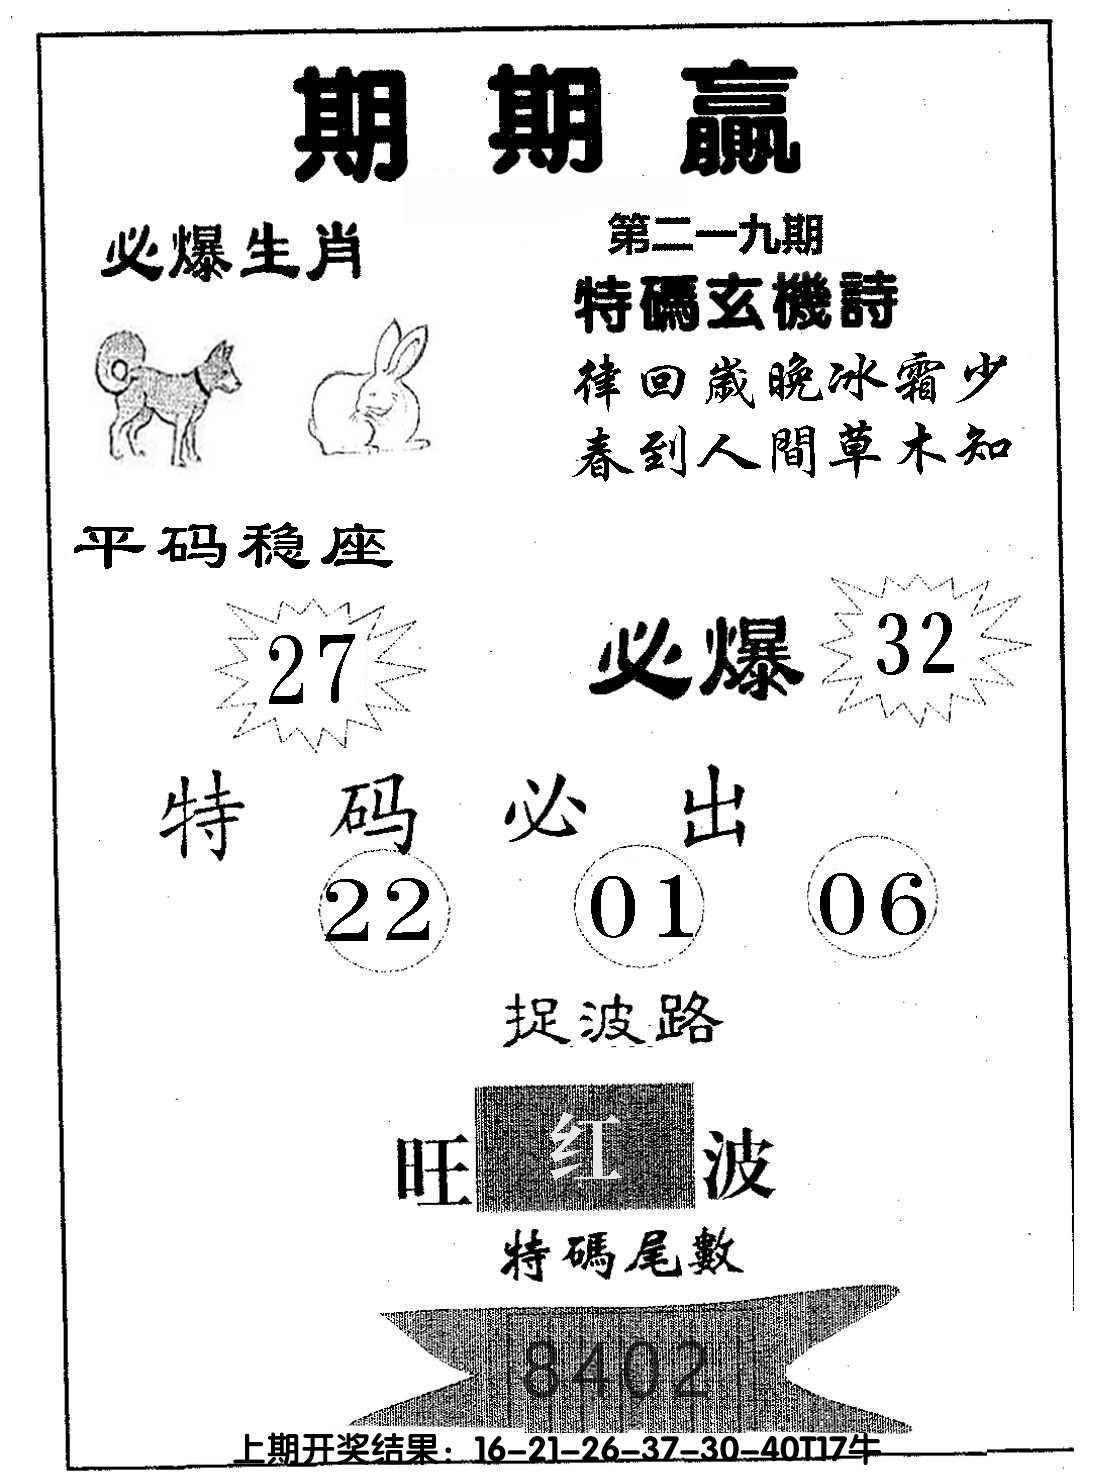 期期赢
必爆生肖
第二一九期
特碼玄機詩
律回歲晚冰霜少
春到人間草木知
平码稳座
27
必爆 32
特码必出
22 01 06
捉波路
旺红波
特碼尾數
8402
上期开奖结果：16-21-26-37-30-40T17牛